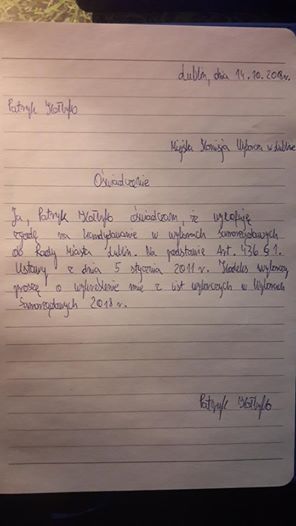 Lublin, dnia 14.10.2018r.
Patryk
Miejska Komisja Wyborcza w Lublinie
Oświadczenie
Ja, Patryk oświadczam, że wycofuję
zgodę na kandydowanie w wyborach samorządowych
do Rady Miasta Lublin. Na podstawie Art. 436 § 1.
Ustawy z dnia 5 stycznia 2011 r. Kodeks wyborczy
proszę o wykreślenie mnie z list wyborczych w Wyborach
Samorządowych 2018 r.
Patryk